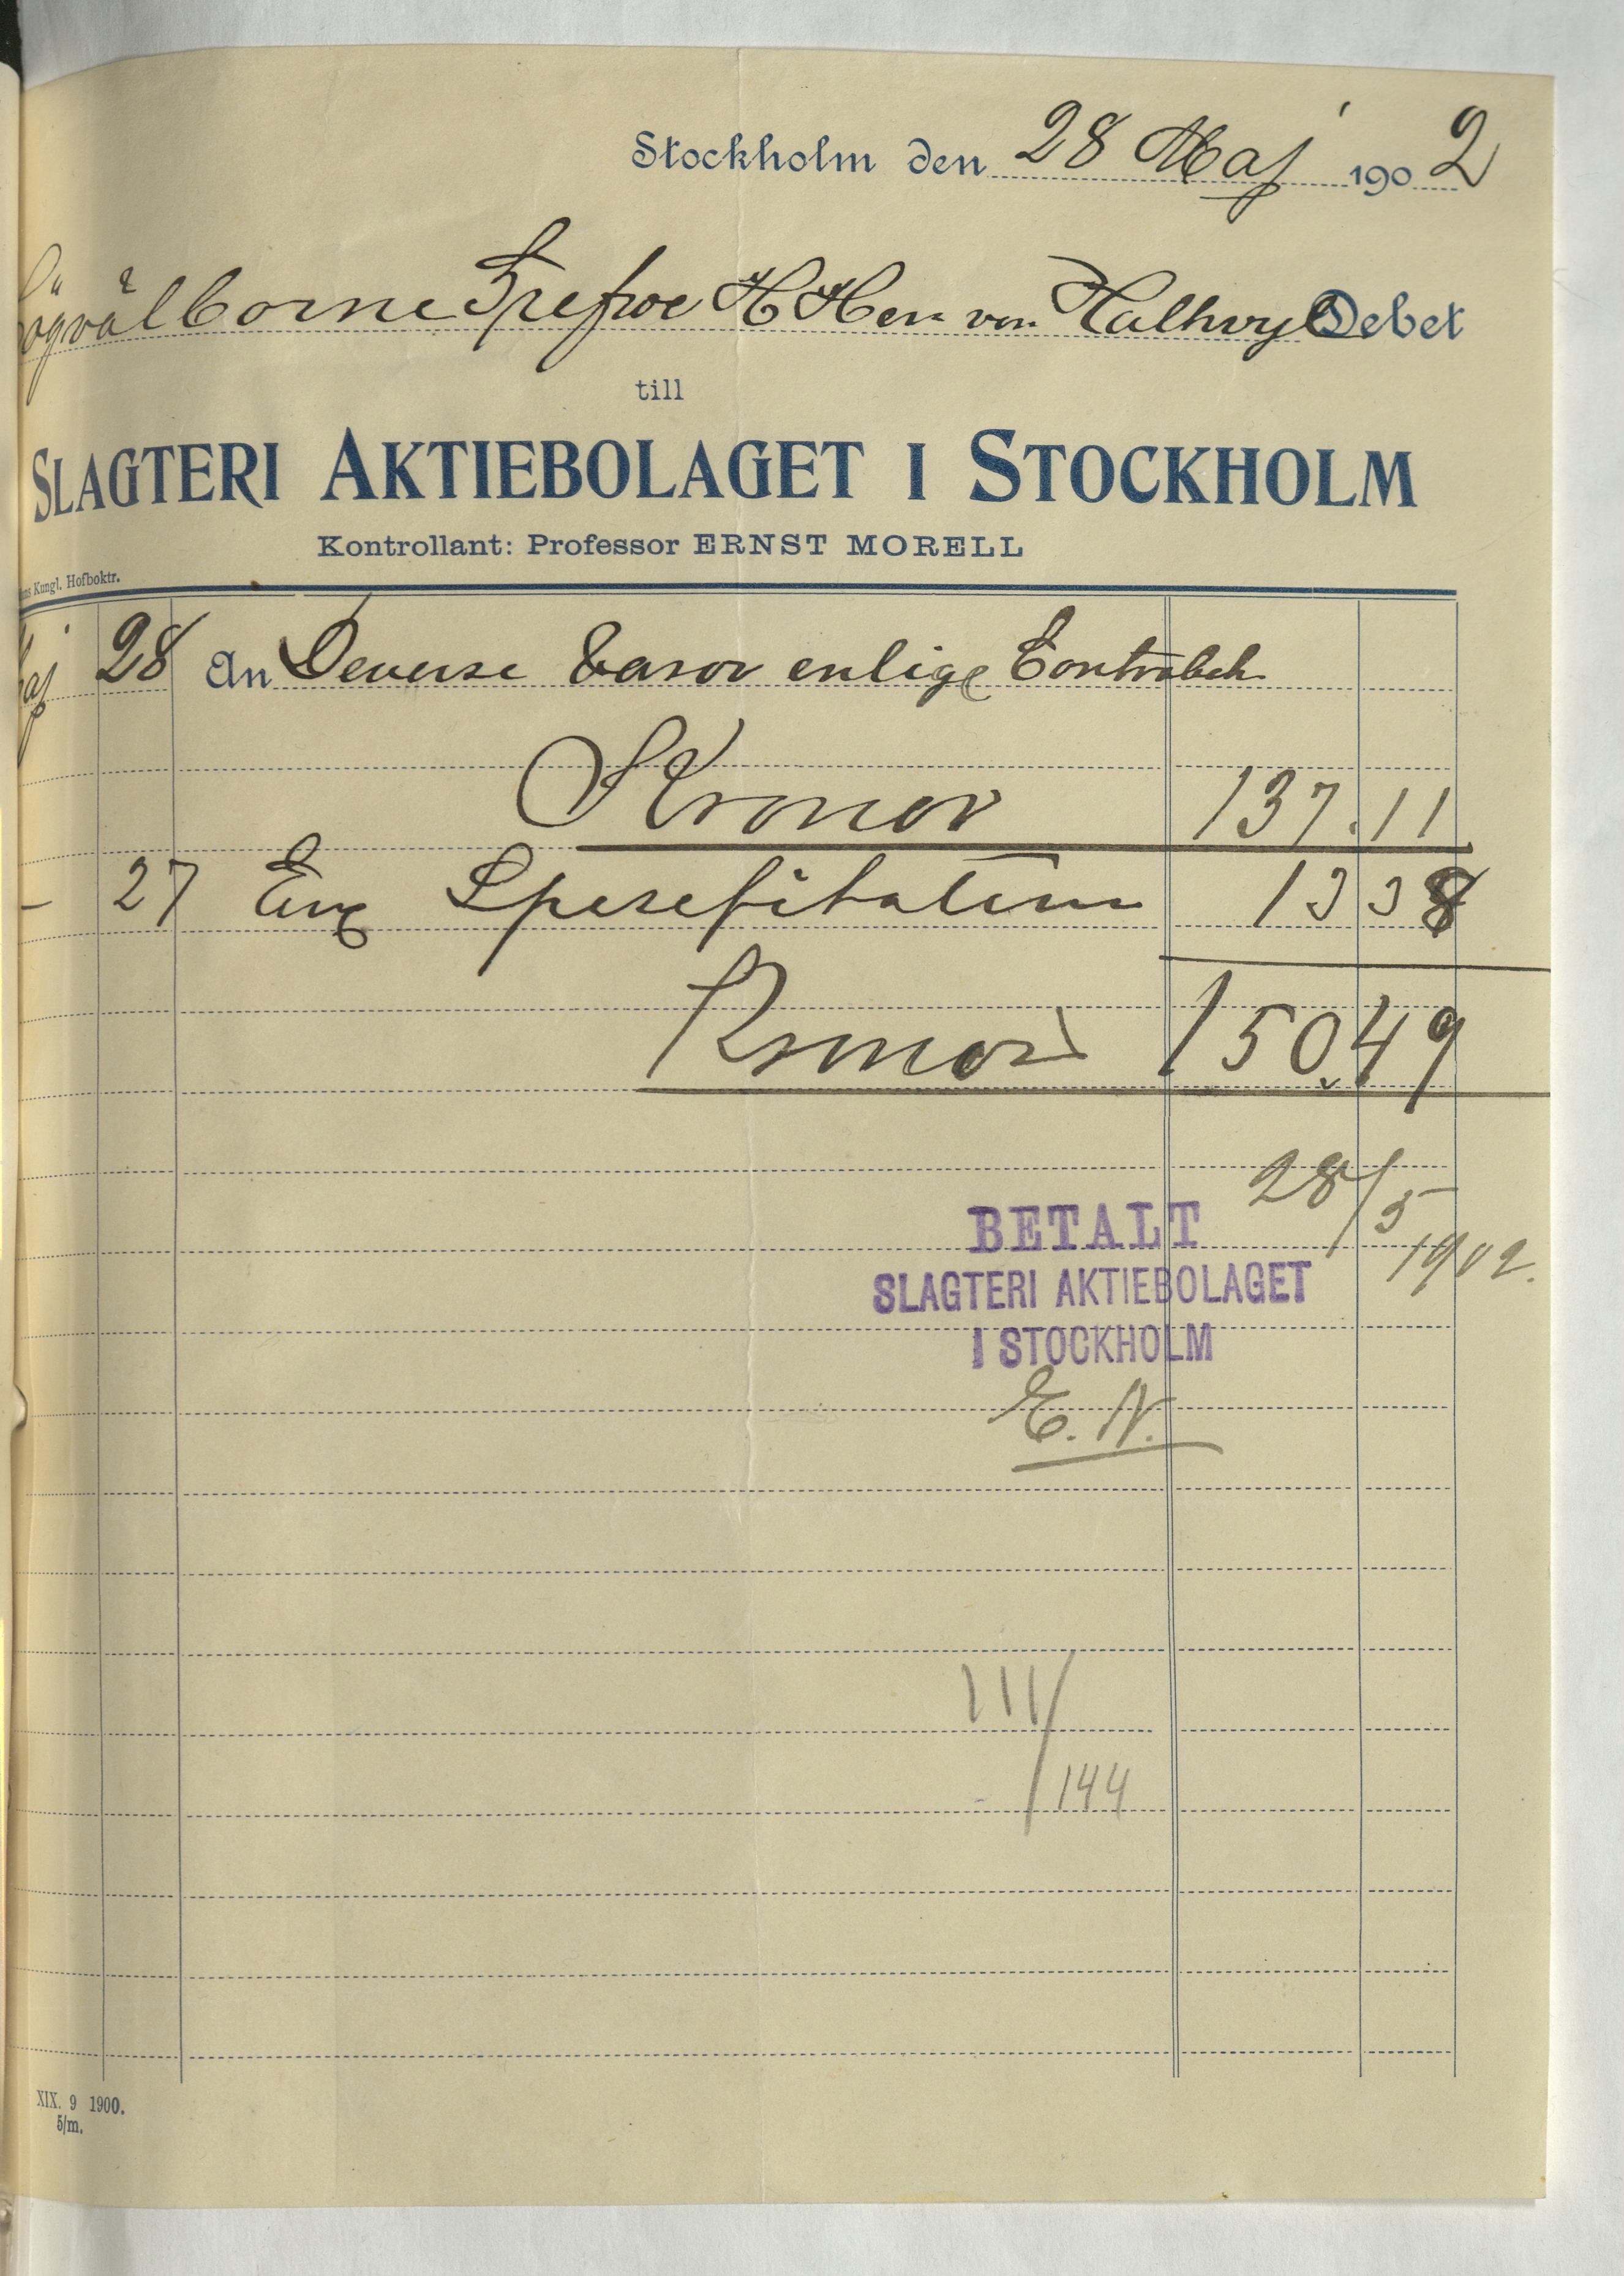 Stockholm den 28 Maj 1902
ögvälborne Grefve H Herr von Hallwyl Debet
till
SLAGTERI AKTIEBOLAGET I STOCKHOLM
Kontrollant: Professor ERNST MORELL
Kungl. Hofboktr.
Maj 28 An Deverse Varor enlige Contrabok
Kronor 137.11
— 27 Enl Spesefikation 13 38
Kronor 150,49
28/5 1902.
BETALT
SLAGTERI AKTIEBOLAGET
I STOCKHOLM
E. N.
111/144
XIX. 9 1900.
5/m.